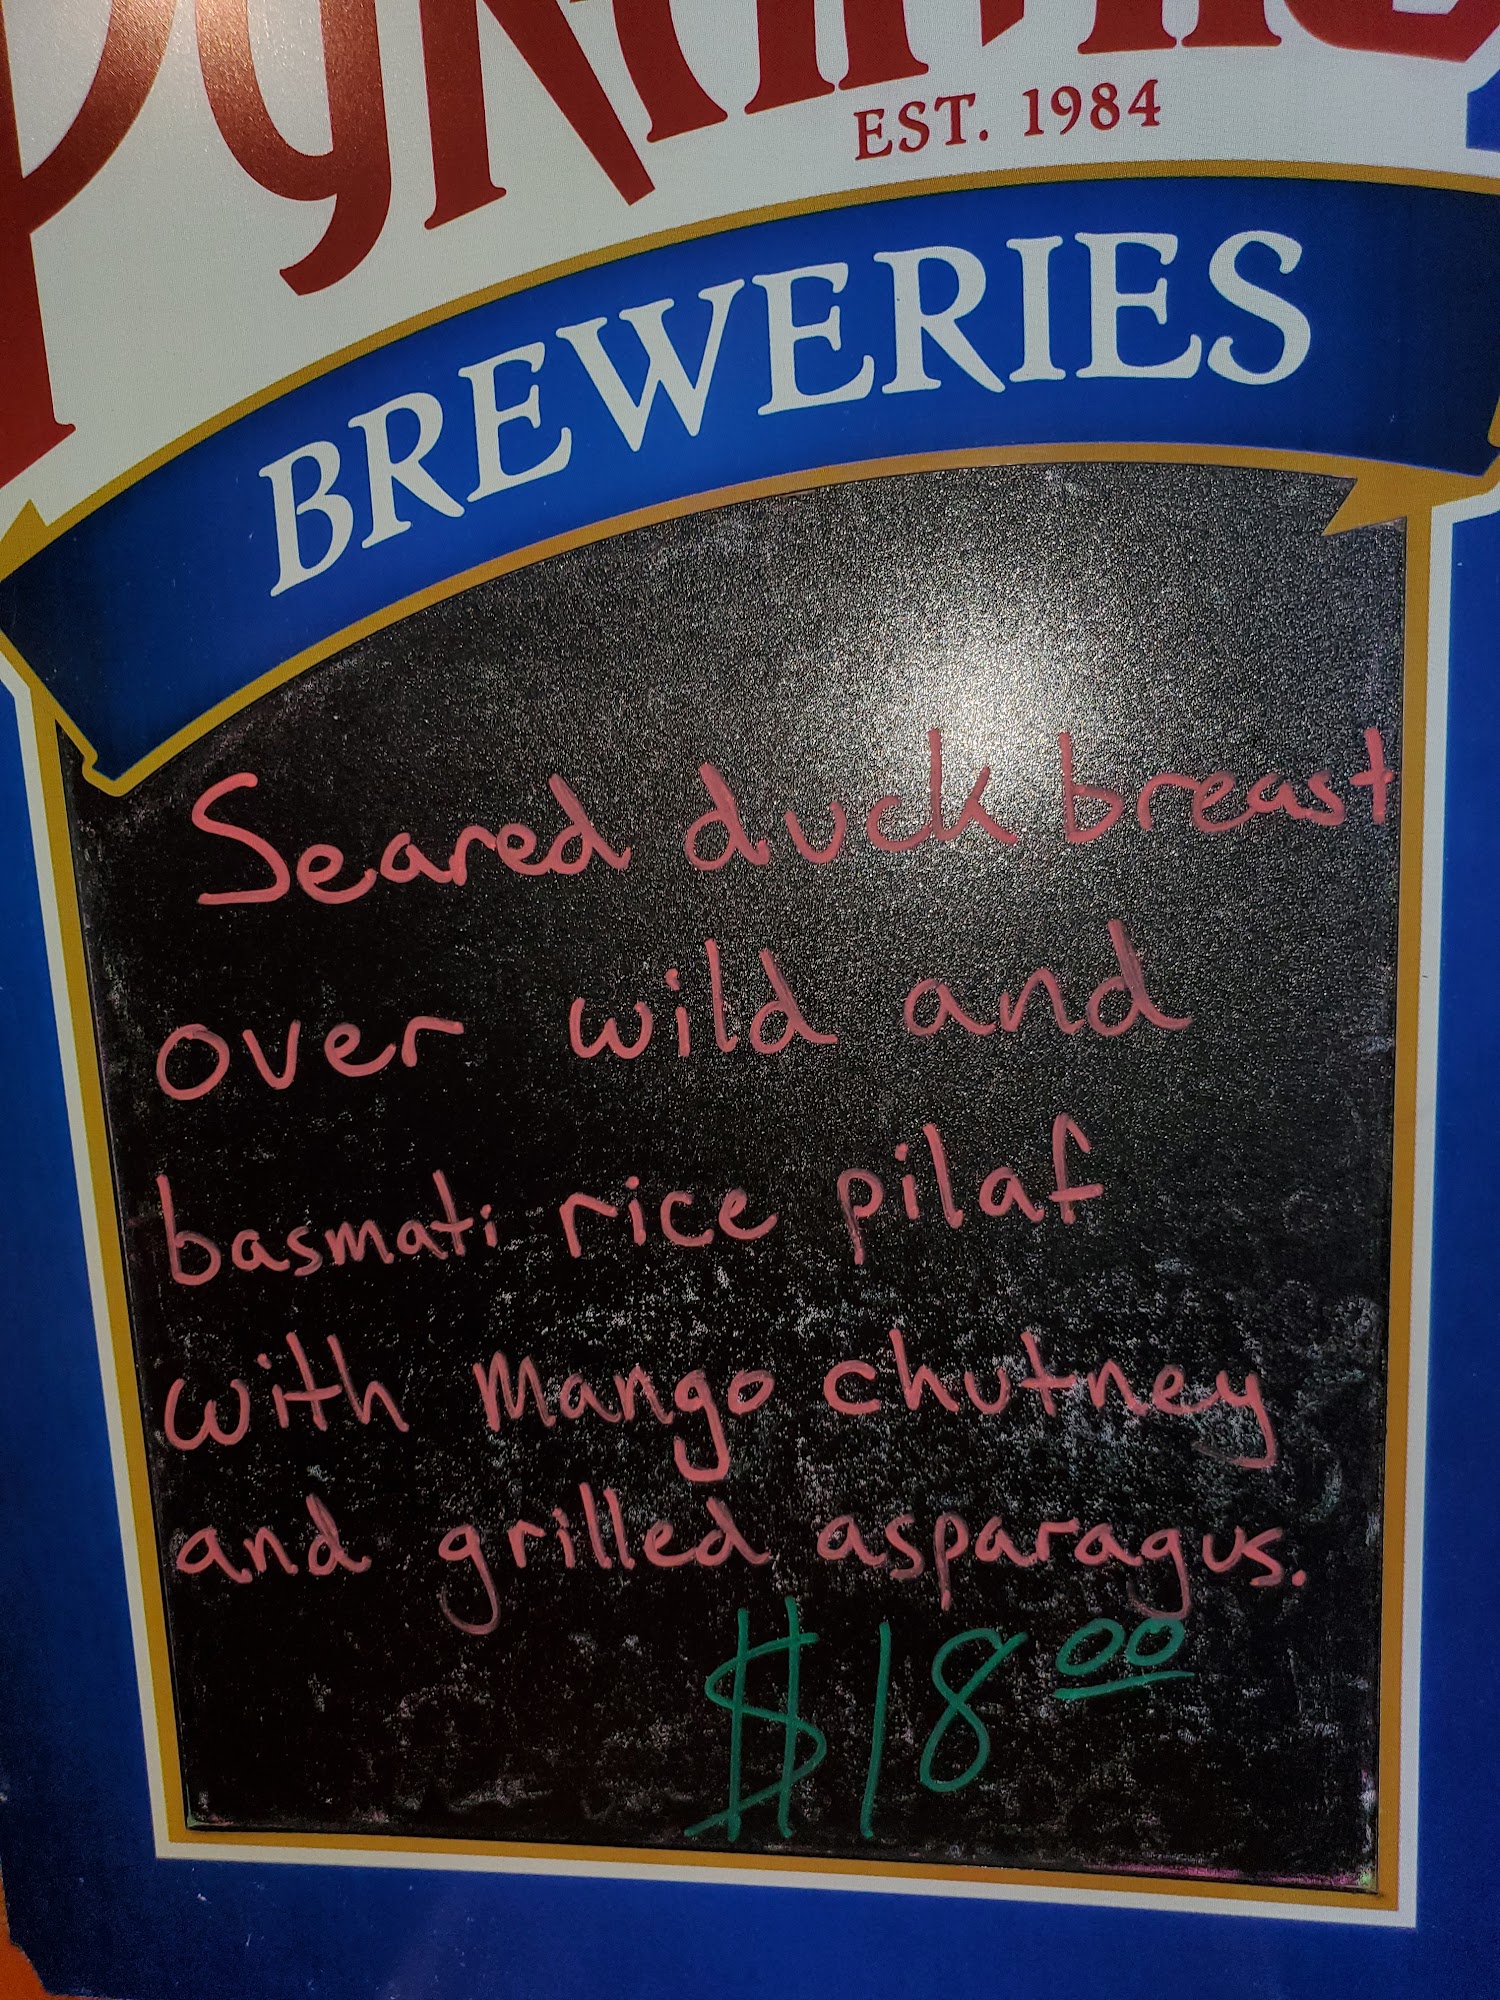 EST. 1984
BREWERIES
Seared duck breast
over wild and
basmati rice pilaf
with Mango chutney
and grilled asparagus.
$18 00